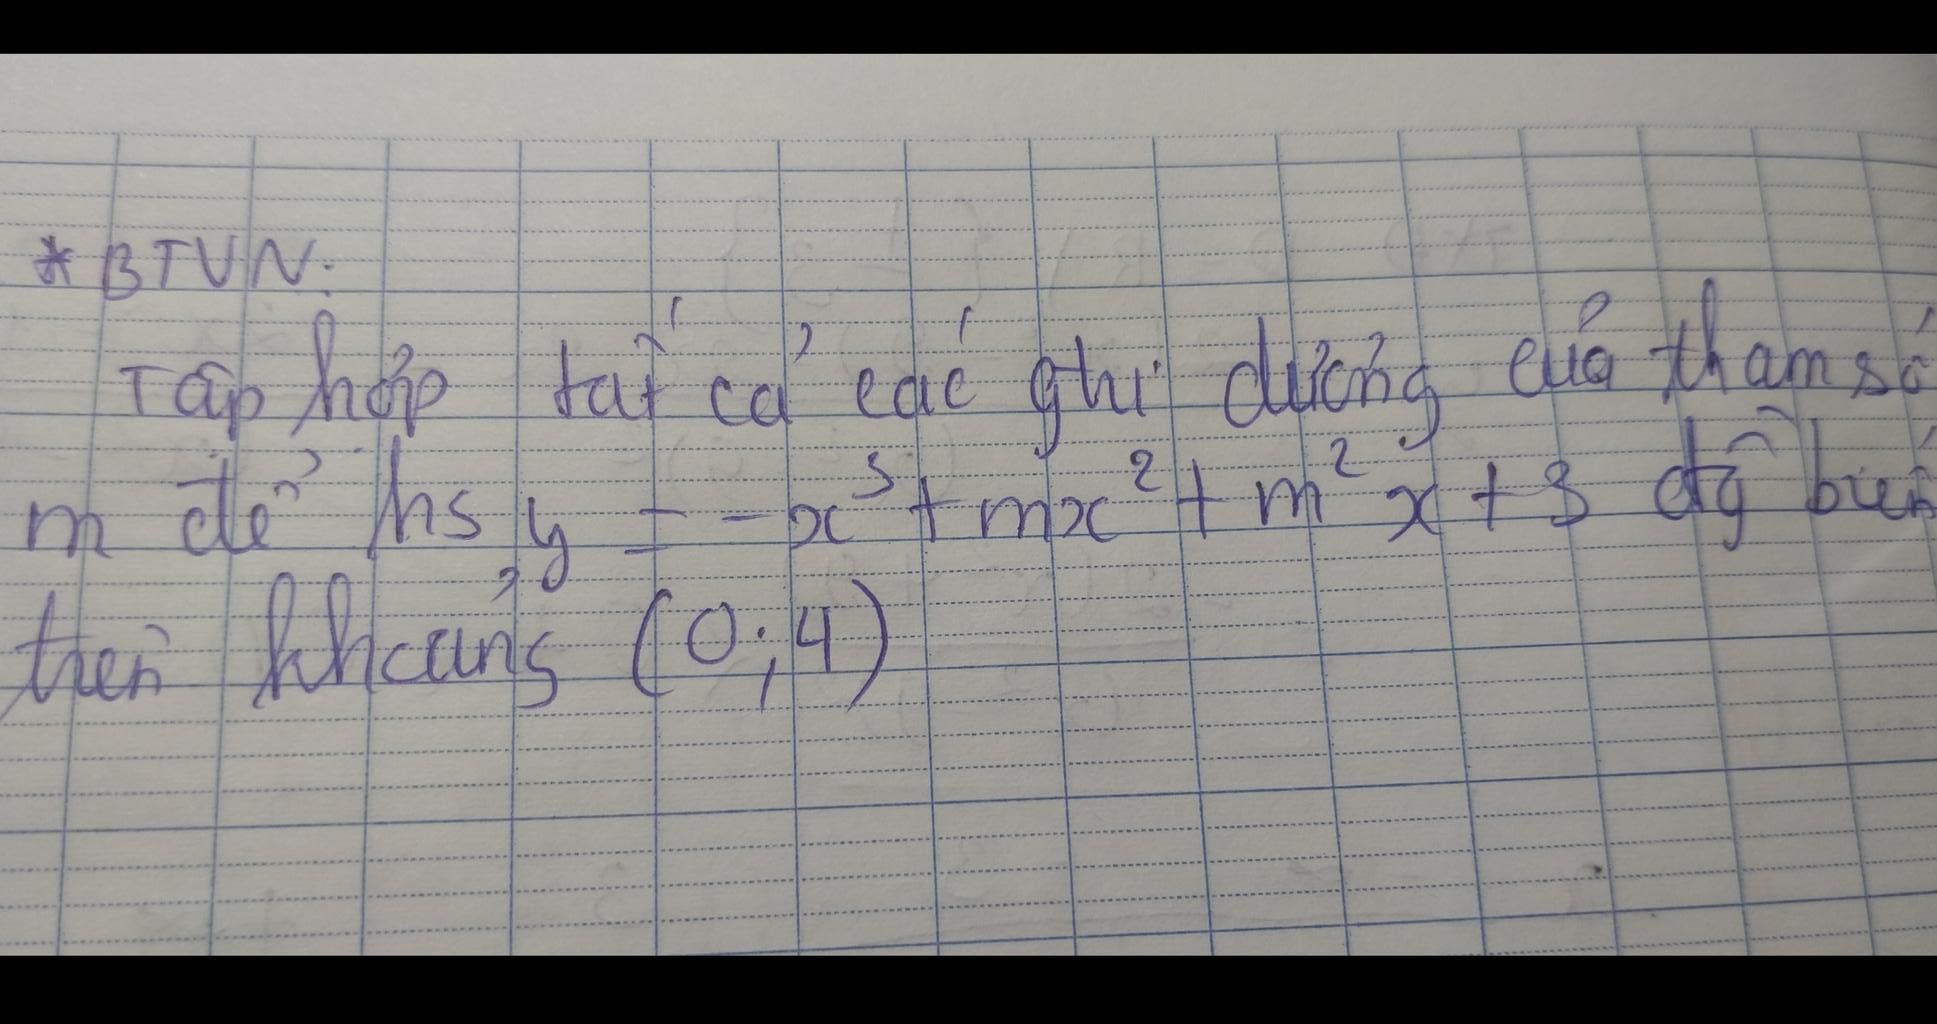 * BTVN:
Tập hợp tất cả các gtri dương của tham số
m để hs y = -x³ + mx² + m²x + 3 đg biến
trên khoảng (0;4)